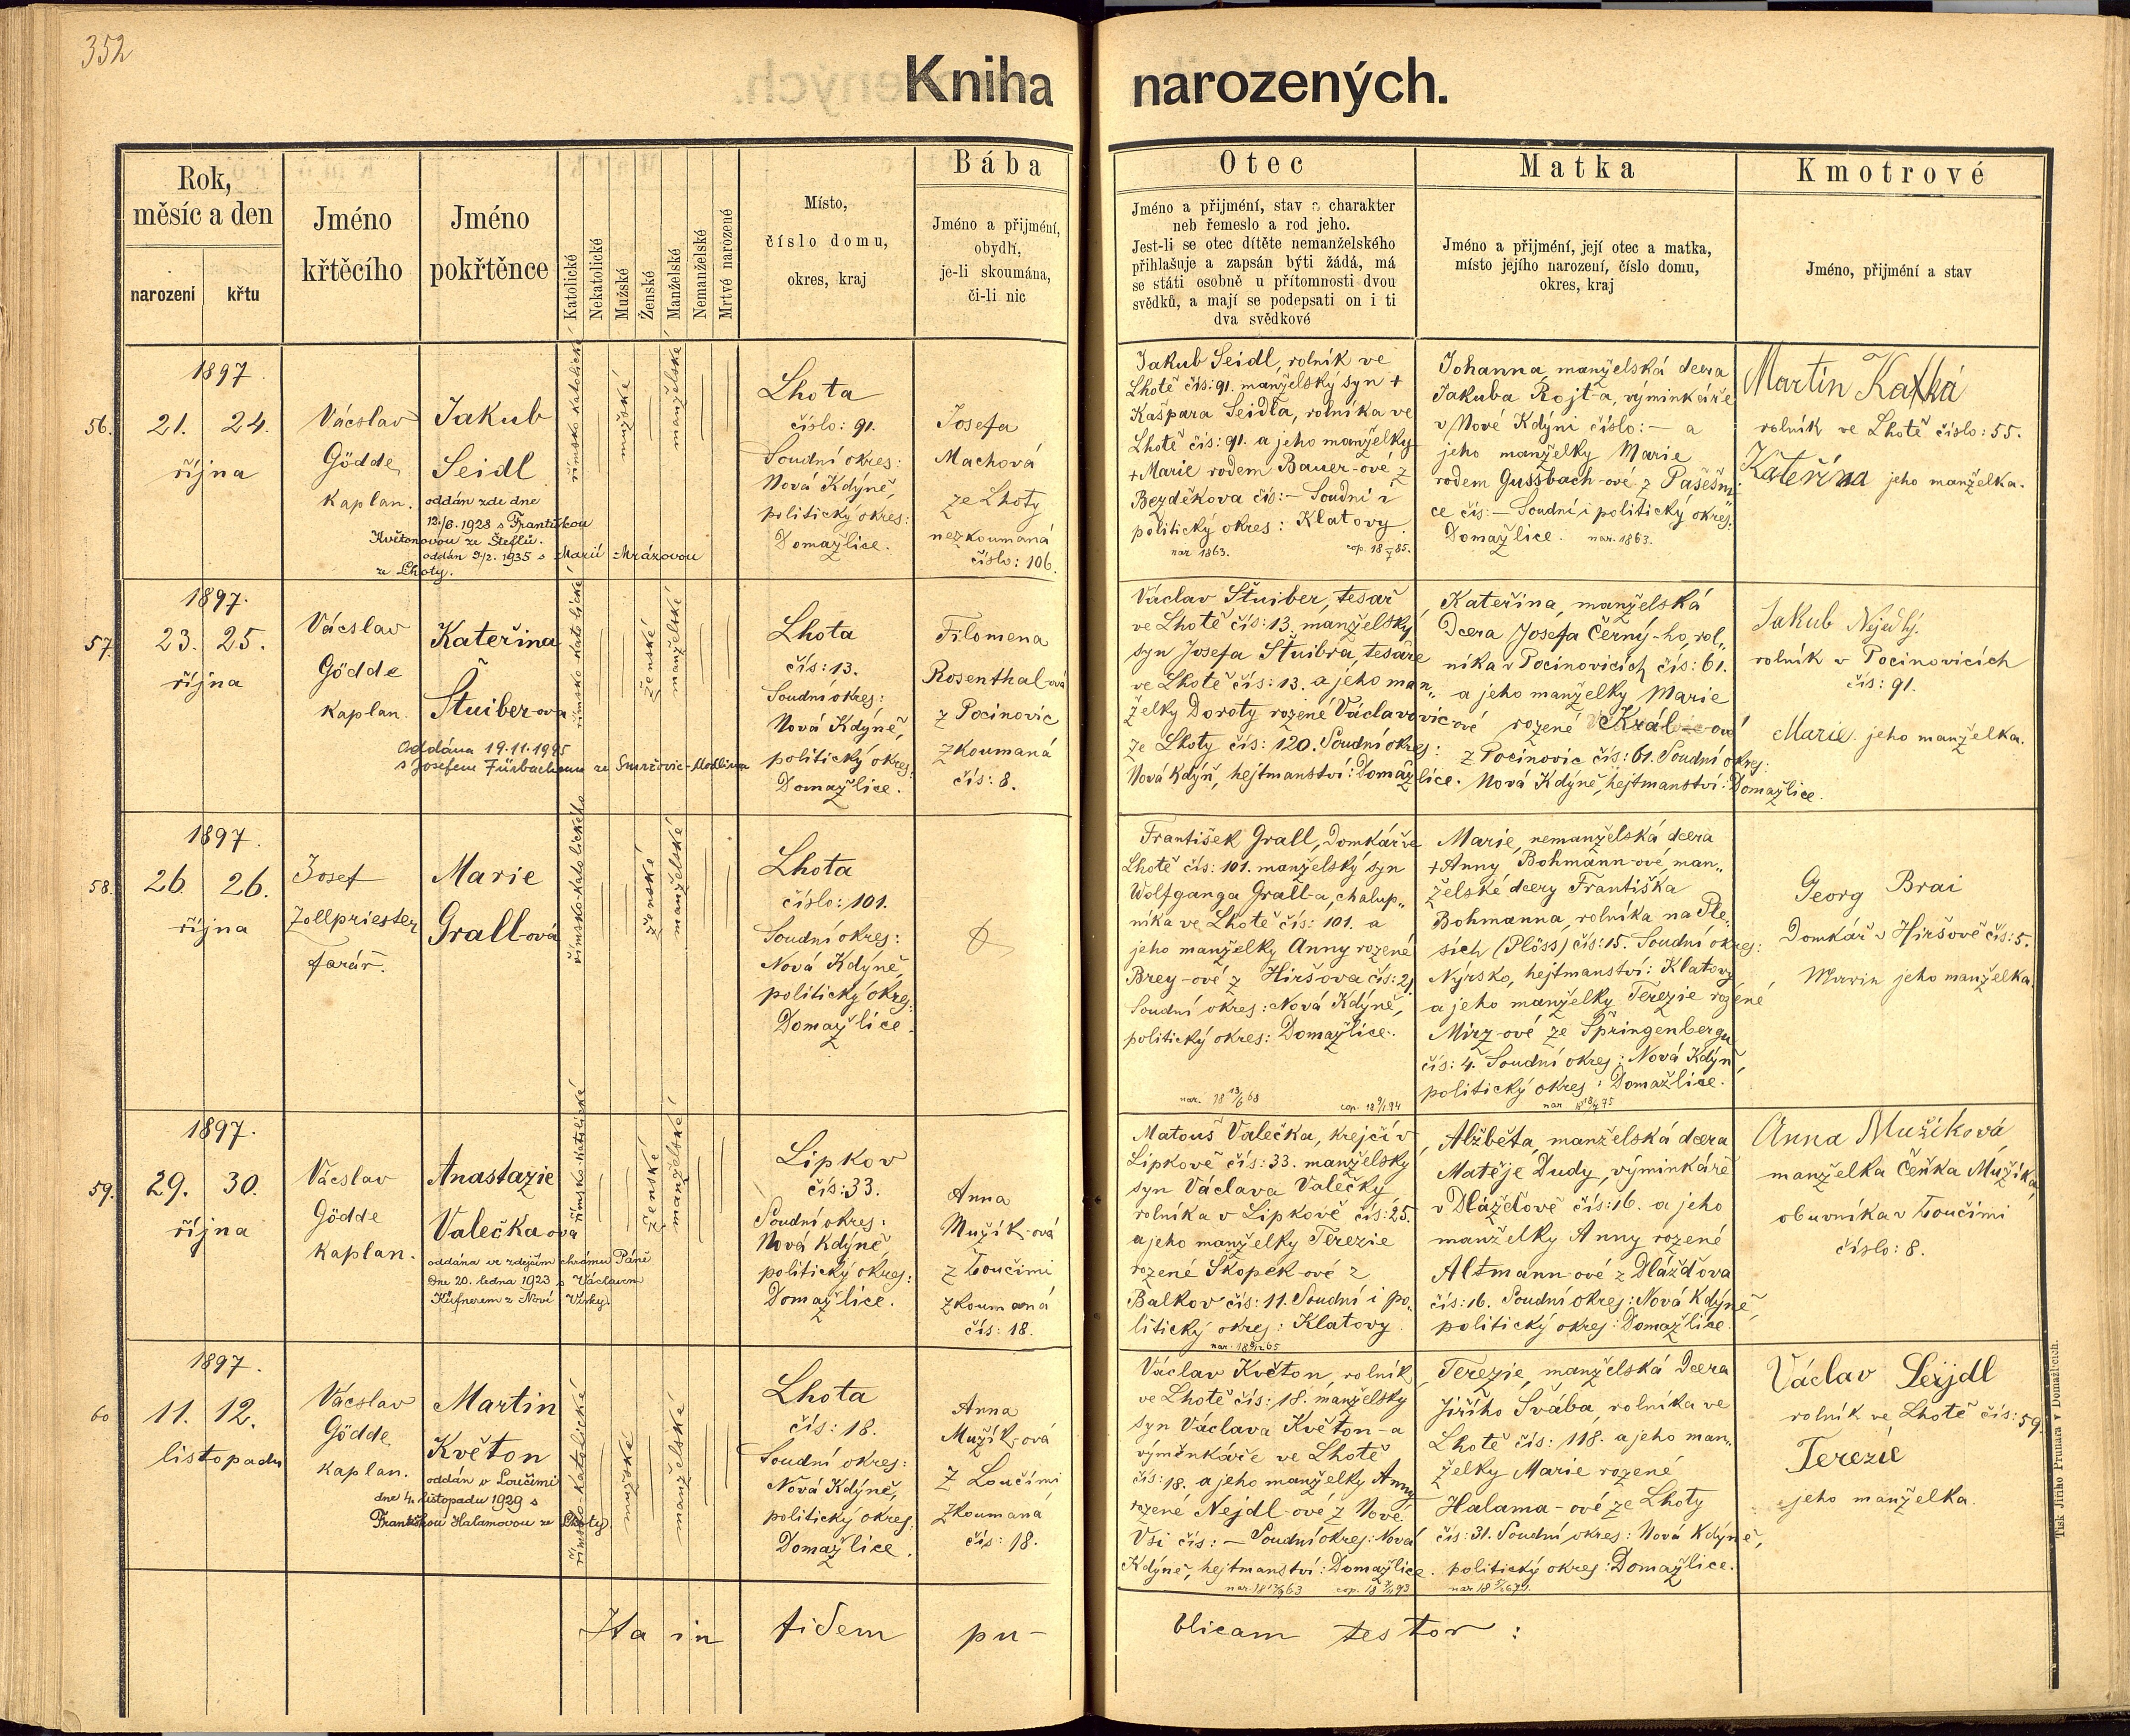 352
Kniha narozených.
Rok,
měsíc a den
narození
křtu
Jméno
křtěcího
Jméno
pokřtěnce
Katolické
Nekatolické
Mužské
Ženské
Manželské
Nemanželské
Mrtvé narozené
Místo,
číslo domu,
okres, kraj
Bába
Jméno a přijmění,
obydlí,
je-li skoumána,
či-li nic
Otec
Jméno a přijmění, stav a charakter
neb řemeslo a rod jeho.
Jest-li se otec dítěte nemanželského
přihlašuje a zapsán býti žádá, má
se státi osobně u přítomnosti dvou
svědků, a mají se podepsati on i ti
dva svědkové
Matka
Jméno a přijmění, její otec a matka,
místo jejího narození, číslo domu,
okres, kraj
Kmotrové
Jméno, přijmění a stav
56.
1897.
21. 24.
října
Václav
Gödde
kaplan.
Jakub
Seidl
oddán zde dne
12./6. 1928 s Františkou
Květonovou ze Šteflů.
oddán 9/2. 1935 s Marií Mrázovou
ze Lhoty.
římsko katolické
mužské
manželské
Lhota
číslo: 91.
Soudní okres:
Nová Kdýně,
politický okres:
Domažlice.
Josefa
Machová
ze Lhoty
nezkoumaná
číslo: 106.
Jakub Seidl, rolník ve
Lhotě čís: 91. manželský syn +
Kašpara Seidla, rolníka ve
Lhotě čís: 91. a jeho manželky
+ Marie rodem Bauer-ové z
Bezděkova čís: — Soudní i
politický okres: Klatovy.
nar 1863.
Johanna, manželská dcera
Jakuba Rojt-a, výminkáře
v Nové Kdýni číslo: — a
jeho manželky Marie
rodem Gussbach-ové z Pašešni
ce čís: — Soudní i politický okres:
Domažlice. nar. 1863.
Martin Kalká
rolník ve Lhotě číslo: 55.
Kateřina jeho manželka.
57.
1897.
23. 25.
října
Václav
Gödde
kaplan.
Kateřina
Štuiber-ova
Oddána 19.11.1925
s Josefem Fürbachem ze Smržovic-Modlina
římsko katolické
ženské
manželské
Lhota
čís: 13.
Soudní okres:
Nová Kdýně,
politický okres:
Domažlice.
Filomena
Rosenthal-ová
z Pocinovic
zkoumaná
čís: 8.
Václav Štuiber, tesař
ve Lhotě čís: 13. manželský
syn Josefa Štuibra, tesaře
ve Lhotě čís: 13. a jeho man„
želky Doroty rozené Václavovic-ové
ze Lhoty čís: 120. Soudní okres:
Nová Kdýň, hejtmanství: Domažlice.
Kateřina, manželská
Dcera Josefa Černý-ho, rol„
níka v Pocinovicích čís: 61.
a jeho manželky Marie
rozené Král-ové
z Pocinovic čís: 61. Soudní okres:
Nová Kdýně, hejtmanství: Domažlice.
Jakub Nejedlý.
rolník v Pocinovicích
čís: 91.
Marie jeho manželka.
58.
1897.
26 26.
října
Josef
Zollpriester
farář.
Marie
Grall-ová
římsko-katolického
ženské
manželské
Lhota
číslo: 101.
Soudní okres:
Nová Kdýně,
politický okres:
Domažlice.
František Grall, Domkář ve
Lhotě čís: 101. manželský syn
Wolfganga Grall-a, chalup„
níka ve Lhotě čís: 101. a
jeho manželky Anny rozené
Brey-ové z Hiršova čís: 21
Soudní okres: Nová Kdýně,
politický okres: Domažlice.
nar. 18 13/6 68
cop. 18 9/1 94
Marie, nemanželská dcera
+ Anny Bohmann-ové, man„
želské dcery Františka
Bohmanna, rolníka na Ple„
sích (Plöss) čís: 15. Soudní okres:
Nýrsko, hejtmanství: Klatovy
a jeho manželky Terezie rozené
Mirz-ové ze Špringenbergu
čís: 4. Soudní okres: Nová Kdýň,
politický okres: Domažlice.
Georg Brai
Domkář v Hiršově čís: 5.
Marie jeho manželka.
59.
1897.
29. 30.
října
Václav
Gödde
kaplan.
Anastazie
Valečka-ová
oddána ve zdejším chrámu Páně
Dne 20. ledna 1923 s Václavem
Küfnerem z Nové Vísky.
římsko-katolické
ženské
manželské
Lipkov
čís: 33.
Soudní okres:
Nová Kdýně,
politický okres:
Domažlice.
Anna
Mužík-ová
z Loučimi
zkoumaná
čís: 18.
Matouš Valečka, krejčí v
Lipkově čís: 33. manželský
syn Václava Valečky
rolníka v Lipkově čís: 25.
a jeho manželky Terezie
rozené Skopek-ové z
Balkov čís: 11. Soudní i po„
litický okres: Klatovy.
Alžběta, manželská dcera
Matěje Dudy, výminkáře
v Dlážďově čís: 16. a jeho
manželky Anny rozené
Altmann-ové z Dlážďova
čís: 16. Soudní okres: Nová Kdýně,
politický okres: Domažlice.
Anna Mužíková
manželka Čeňka Mužíka,
obuvníka v Loučimi
číslo: 8.
60
1897.
11. 12.
listopadu
Václav
Gödde
kaplan.
Martin
Květon
oddán v Loučimi
dne 4. listopadu 1929 s
Františkou Halamovou ze Lhoty
římsko-katolické
mužské
manželské
Lhota
čís: 18.
Soudní okres:
Nová Kdýně,
politický okres:
Domažlice.
Anna
Mužík-ová
z Loučimi
zkoumaná
čís: 18.
Václav Květon, rolník
ve Lhotě čís: 18. manželský
syn Václava Květon-a
výměnkáře ve Lhotě
čís: 18. a jeho manželky Anny
rozené Nejdl-ové z Nové
Vsi čís: — Soudní okres: Nová
Kdýně, hejtmanství: Domažlice.
Terezie, manželská Dcera
Jiřího Švába, rolníka ve
Lhotě čís: 118. a jeho man„
želky Marie rozené
Halama-ové ze Lhoty
čís: 31. Soudní okres: Nová Kdýně,
politický okres: Domažlice.
Václav Seijdl
rolník ve Lhotě čís: 59
Terezie
jeho manželka.
Ita in fidem pu- blicam testor:
Tisk Jiřího Prunara v Domažlicích.